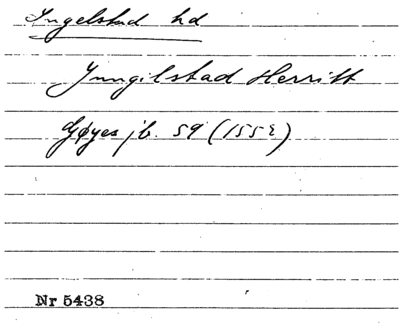 Ingelstad hd
Jnngilstad Herritt
Gøyes jb. 59 (1552)
Nr 5438